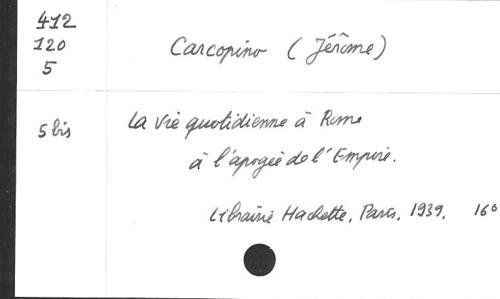 412
120
5
Carcopino (Jérôme)
5 bis
La Vie quotidienne à Rome
à l'apogée de l'Empire.
Librairie Hachette, Paris, 1939, 16º